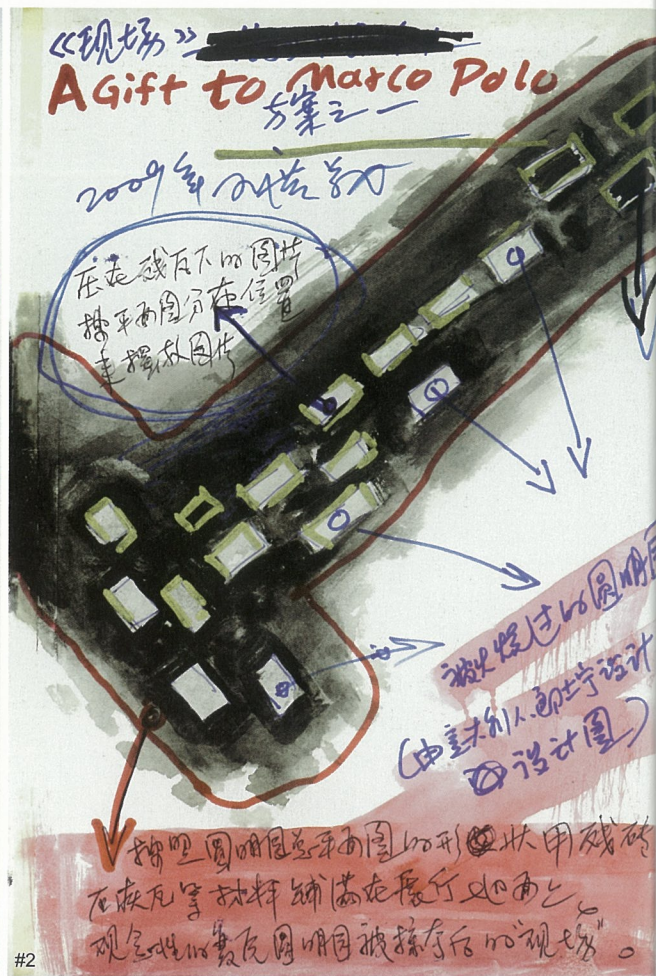 《现场》
A Gift to Marco Polo
方案之一
2009年
压在残瓦下的图片
按平面图分布位置
来摆放图片
被火烧过的圆明园
(由意大利人郎士宁设计
设计图)
按照圆明园总平面图的形状用残砖
瓦等材料铺满在展厅地面上。
观念性的复原圆明园被掠夺后的"现场"。
#2